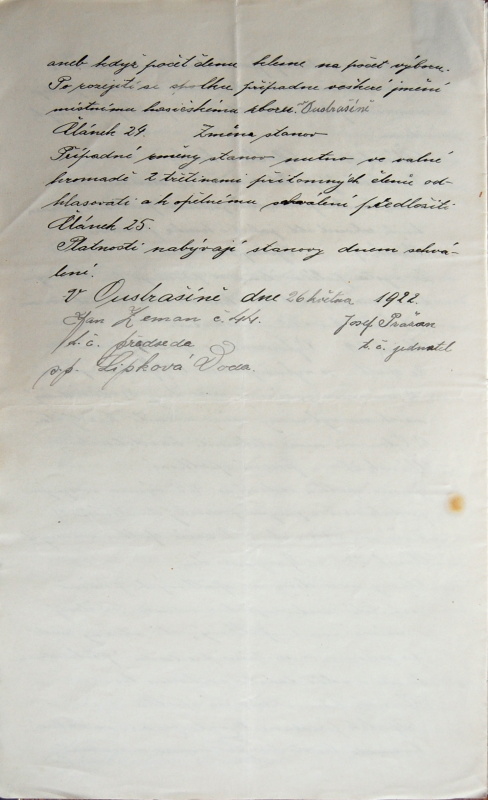 aneb když počet členů klesne na počet výboru.
Po rozejití se spolku, připadne veškeré jmění
místnímu hasičskému sboru. Oustrašíně
Článek 24. Změna stanov
Případné změny stanov nutno ve valné
hromadě 2 třetinami přítomných členů od-
hlasovati a k opětnému schválení předložiti.
Článek 25.
Platnosti nabývají stanovy dnem schvá-
lení.
V Oustrašíně dne 26 května 1922.
Jan Zeman č. 44. Josef
t. č. předseda t. č. jednatel
p. Lipková Voda.